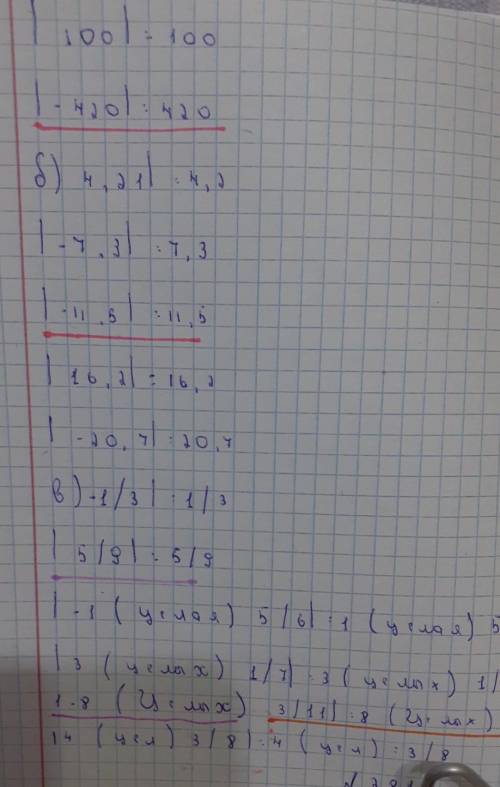 | 100| = 100
|-420| = 420
б) 4,21| = 4,2
|-7,3| = 7,3
|-11,5| = 11,5
| 16,2| = 16,2
| -20,7| = 20,7
в) -1/3| = 1/3
| 5/9| = 5/9
|-1 (целая) 5/6| = 1 (целая) 5
|3 (целых) 1/7| = 3 (целых) 1/
1-8 (Целых) 3/11| = 8 (Целых)
14 (цел) 3/8| = 4 (цел) = 3/8